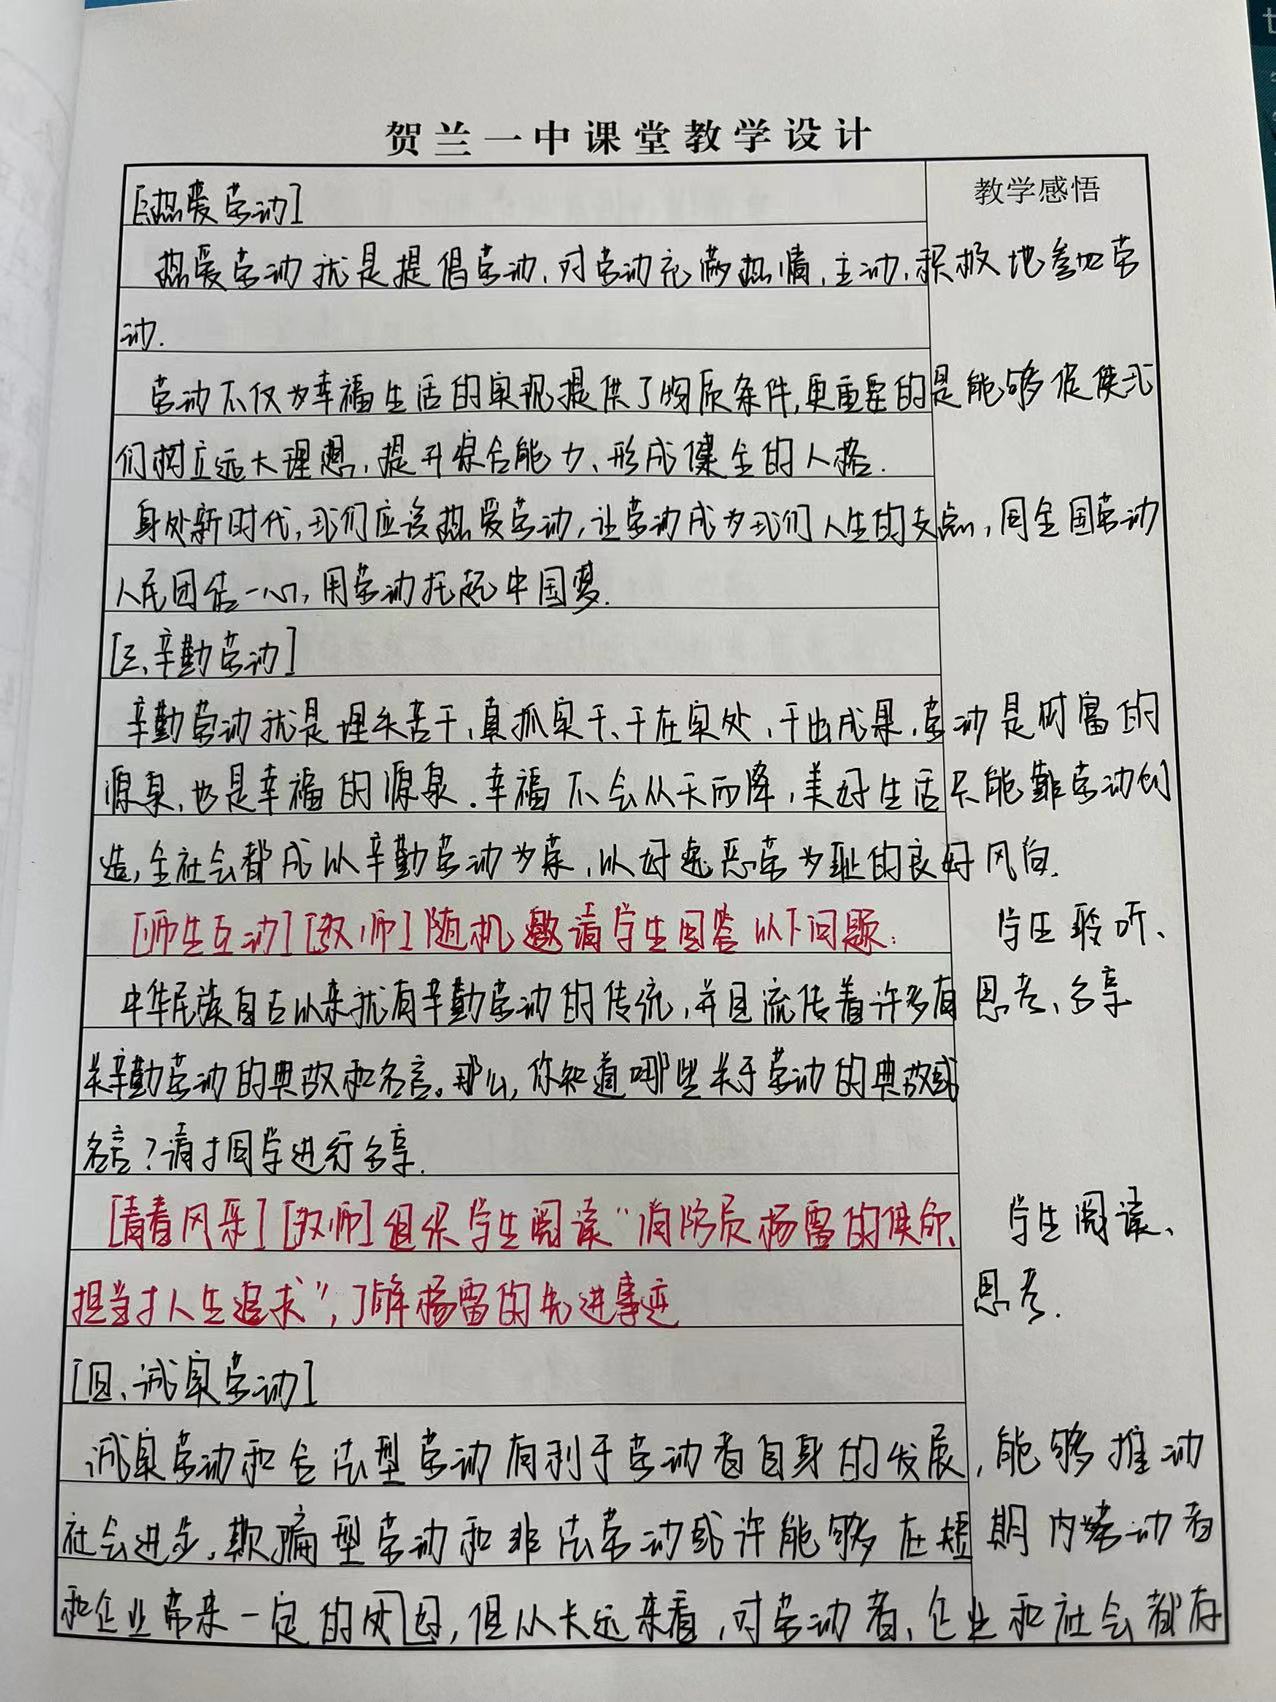 贺兰一中课堂教学设计
教学感悟
[二热爱劳动]
热爱劳动就是提倡劳动,对劳动充满热情,主动,积极地参加劳
动.
劳动不仅为幸福生活的实现提供了物质条件,更重要的是能够促使我
们树立远大理想,提升综合能力、形成健全的人格.
身处新时代,我们应该热爱劳动,让劳动成为我们人生的支点,同全国劳动
人民团结一心,用劳动托起中国梦.
[三、辛勤劳动]
辛勤劳动就是埋头苦干,真抓实干、干在实处,干出成果,劳动是财富的
源泉,也是幸福的源泉.幸福不会从天而降,美好生活只能靠劳动创
造,全社会都成以辛勤劳动为荣,以好逸恶劳为耻的良好风尚.
[师生互动][教师]随机邀请学生回答以下问题:
学生聆听、
中华民族自古以来就有辛勤劳动的传统,并且流传着许多有
思考、分享
关辛勤劳动的典故和名言。那么,你知道哪些关于劳动的典故或
名言?请才同学进行分享.
[青春风采][教师]组织学生阅读“消防员杨雷的使命、
学生阅读、
担当才人生追求”,了解杨雷的先进事迹
思考.
[四、诚实劳动]
诚实劳动和合法型劳动有利于劳动者自身的发展,能够推动
社会进步,欺骗型劳动和非法劳动或许能够在短期内劳动者
和企业带来一定的好,但从长远来看,对劳动者、企业和社会都有